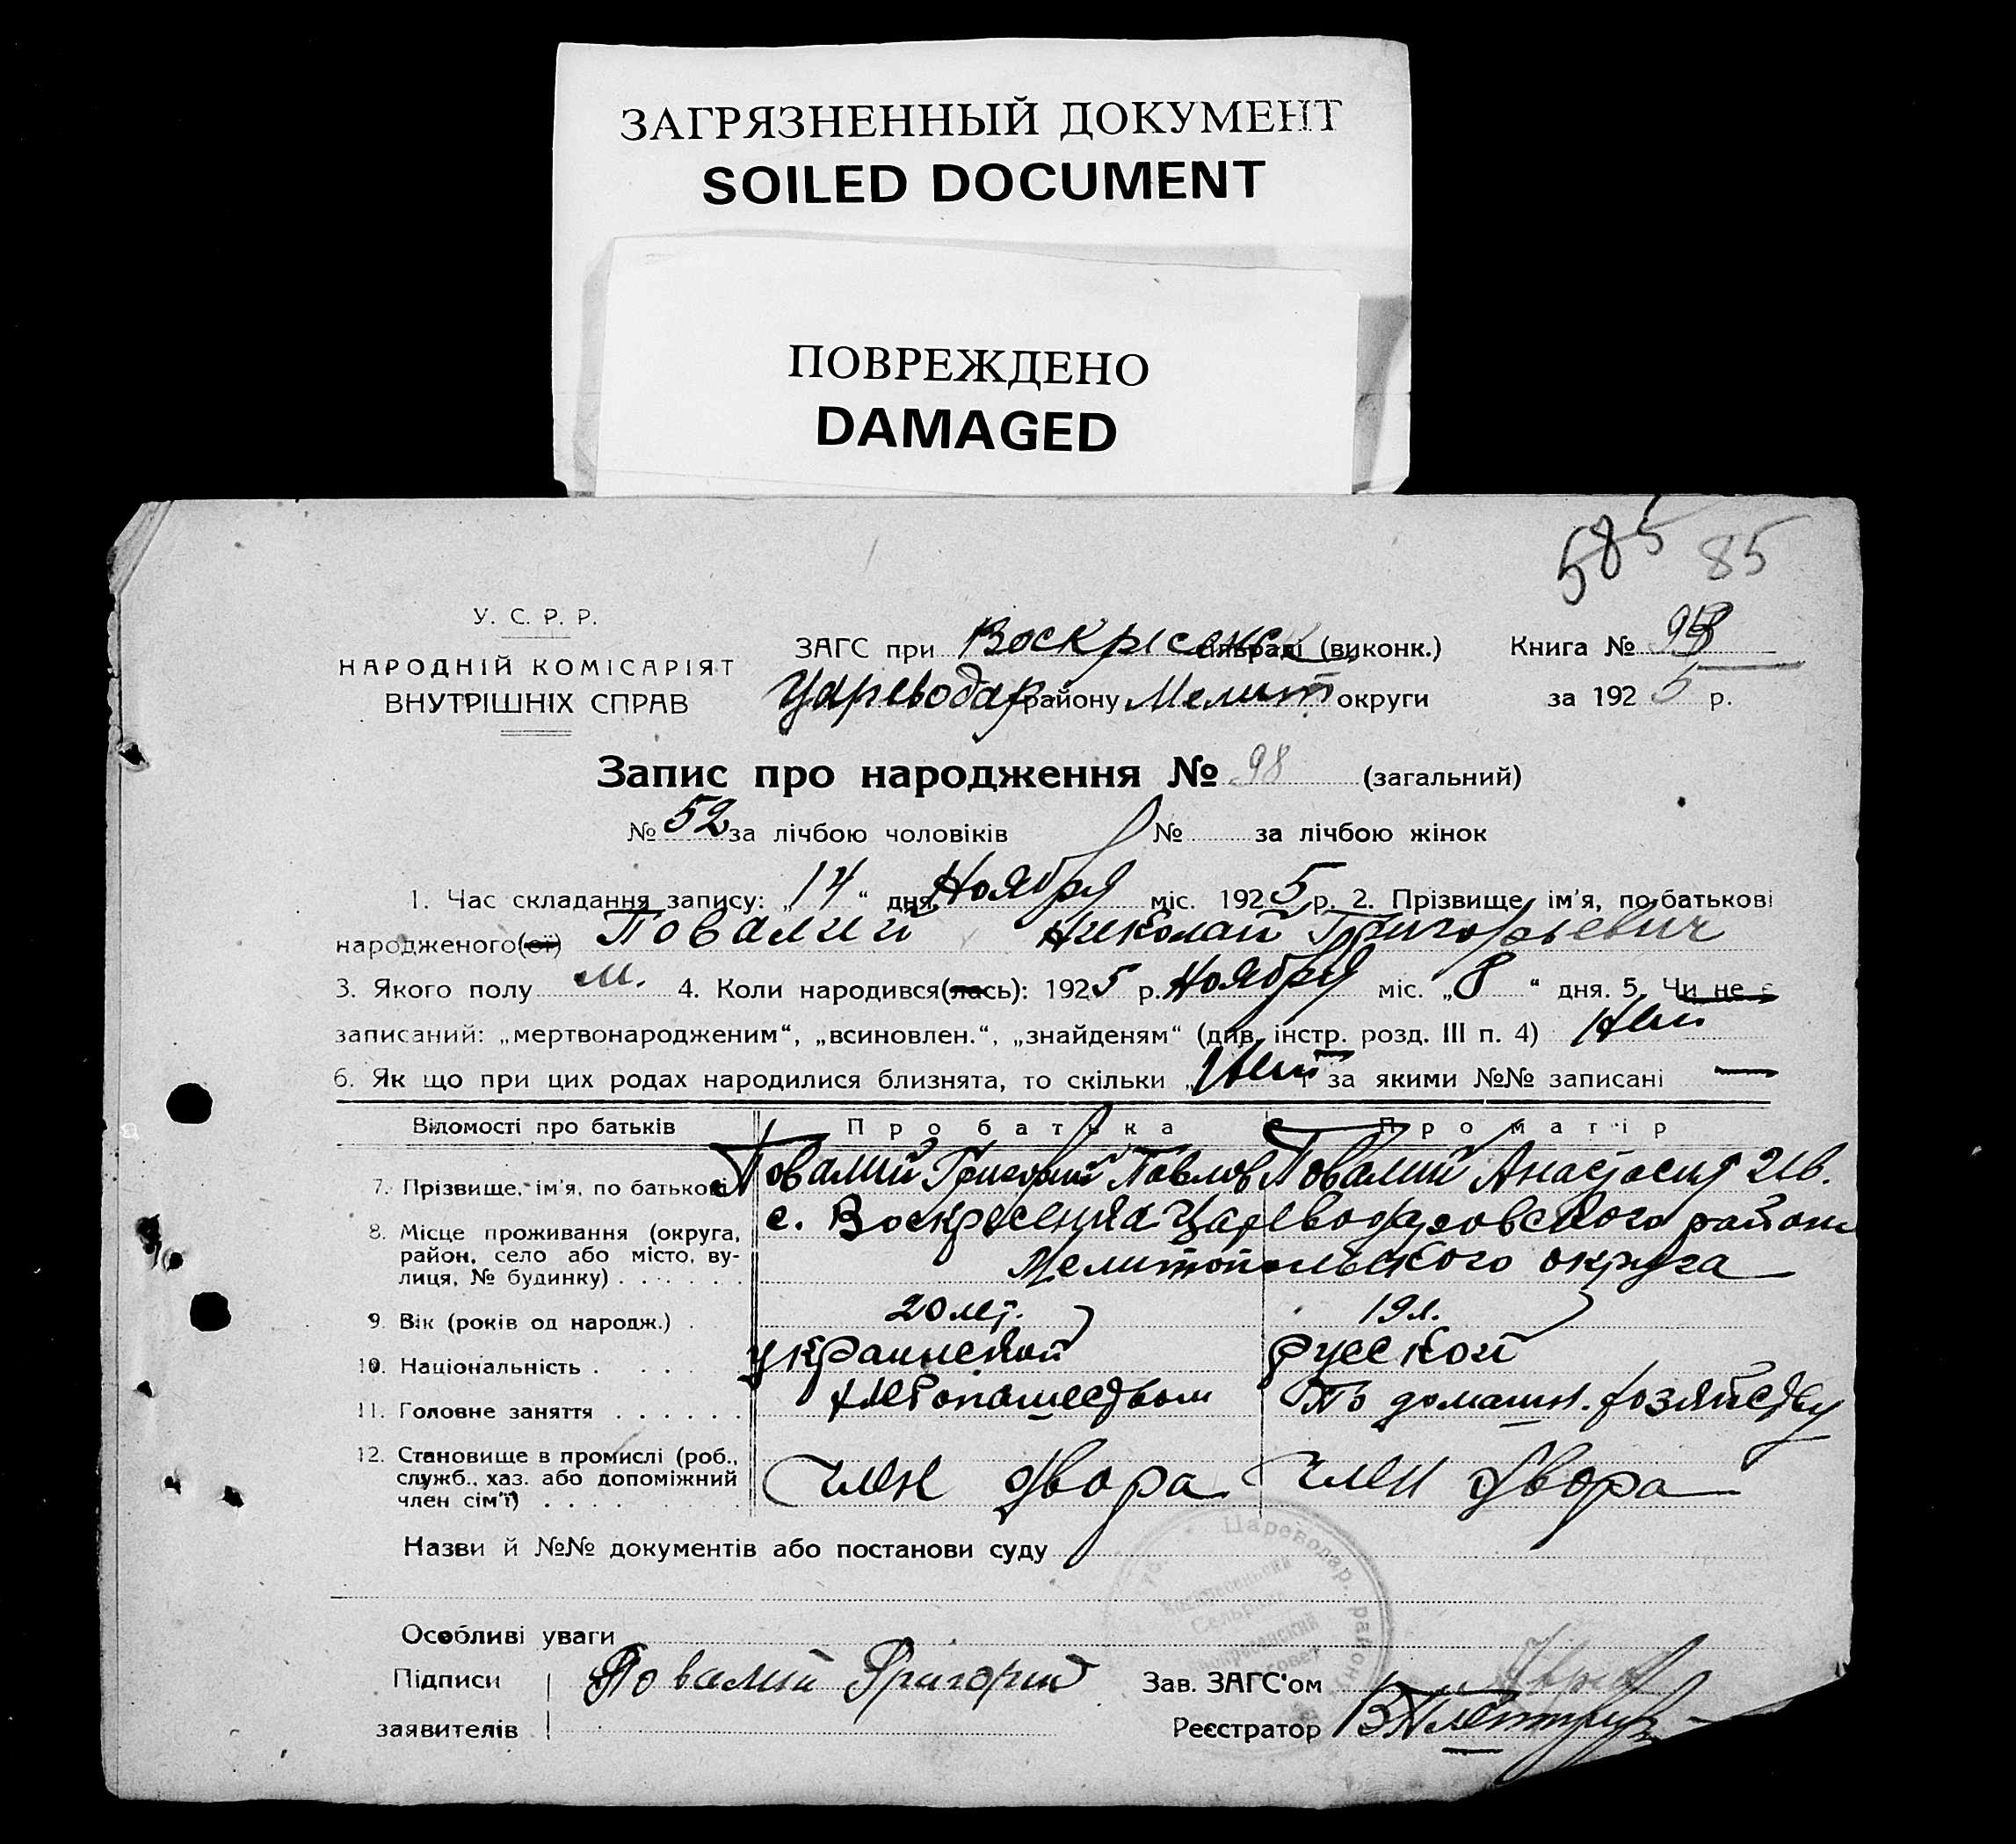 ЗАГРЯЗНЕННЫЙ ДОКУМЕНТ
SOILED DOCUMENT
ПОВРЕЖДЕНО
DAMAGED
585 85
У. С. Р. Р.
НАРОДНІЙ КОМІСАРІЯТ
ВНУТРІШНІХ СПРАВ
ЗАГС при Воскрісенс сільраді (виконк.) Книга № 98
Цареводар району Мелит округи за 1925 р.
Запис про народження № 98 (загальний)
№ 52 за лічбою чоловіків № за лічбою жінок
1. Час складання запису: „14“ дня Ноября міс. 1925 р. 2. Прізвище, ім'я, по батькові
народженого(ої) Повалий Николай Григорьевич
3. Якого полу м. 4. Коли народився(лась): 1925 р. Ноября міс. „8“ дня. 5. Чи не є
записаний: „мертвонародженим“, „всиновлен.“, „знайденям“ (див. інстр. розд. III п. 4) Нет
6. Як що при цих родах народилися близнята, то скільки „Нет“ і за якими №№ записані —
Відомості про батьків Про батька Про матір
7. Прізвище, ім'я, по батькові Повалий Григорий Павлов Повалий Анастасия Ив.
8. Місце проживання (округа, район, село або місто, вулиця, № будинку) с. Воскресенка Цареводаровского района
Мелитопольского округа
9. Вік (років од народж.) 20 лет. 19 л.
10. Національність украинской русской
11. Головне заняття Хлебопашеством По домашн. хозяйству
12. Становище в промислі (роб., служб., хаз. або допоміжний член сім'ї) Член двора Член двора
Назви й №№ документів або постанови суду
Цареводар. район
Сельрада
Особливі уваги
Підписи Повалий Григорий Зав. ЗАГС'ом
заявителів Реєстратор